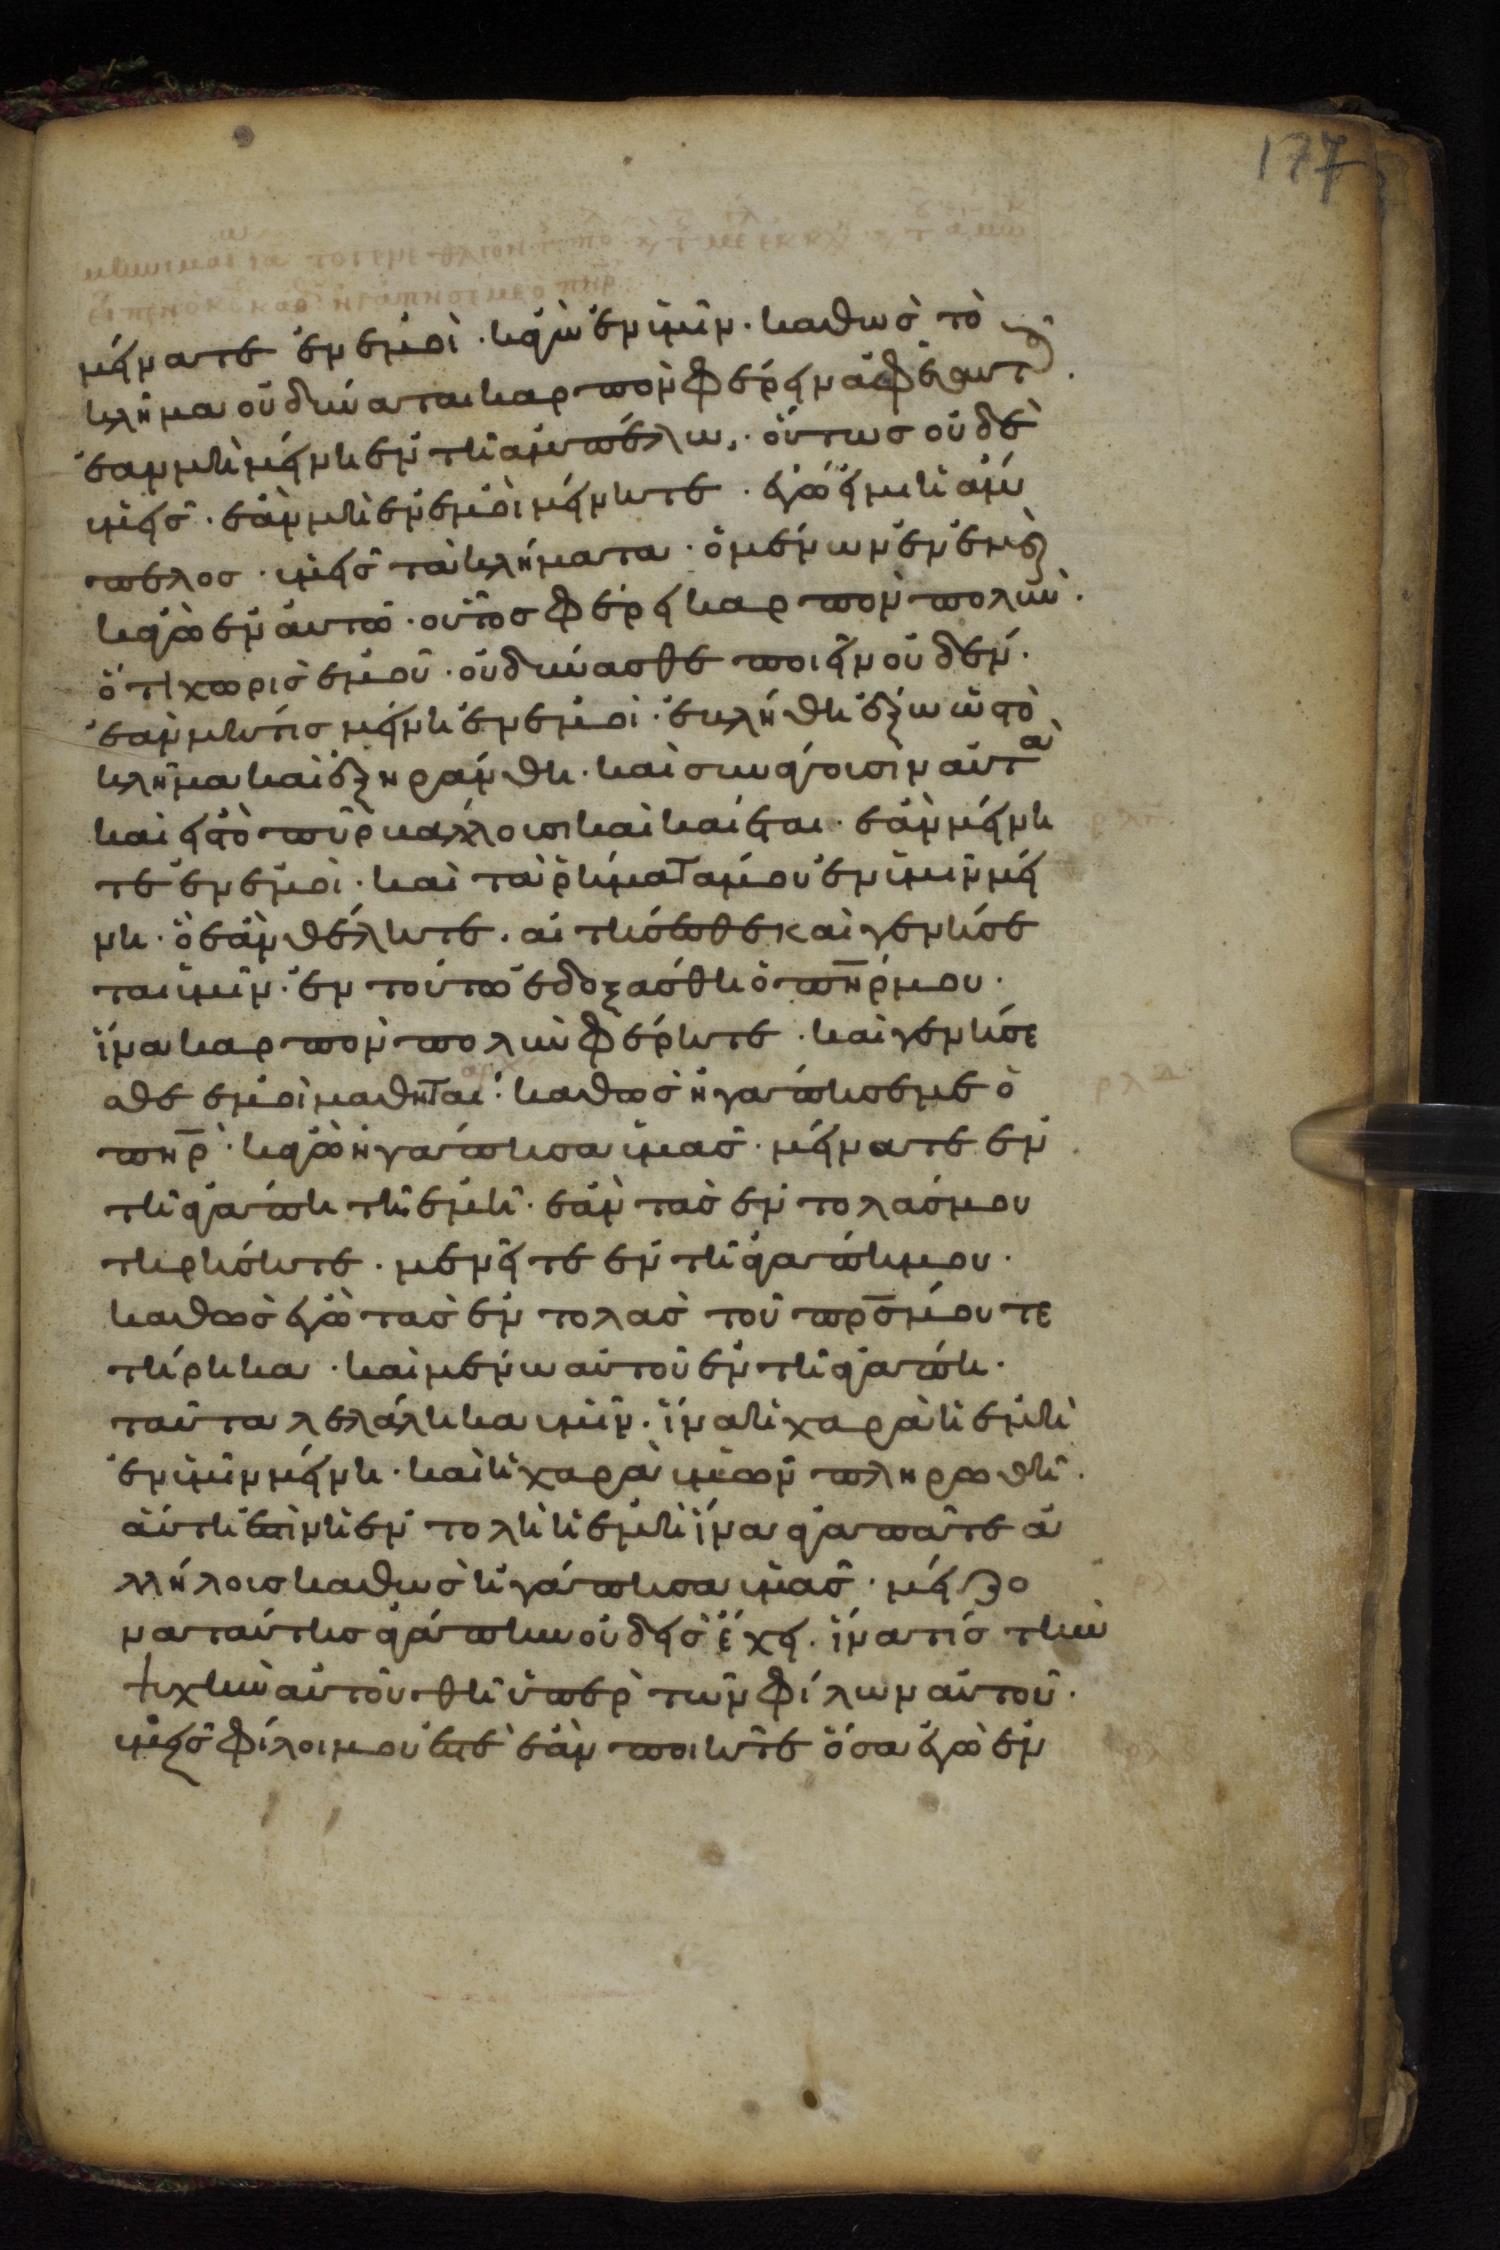 177
μείνατε ἐν ἐμοὶ · κἀγὼ ἐν ὑμῖν · καθὼς τὸ
κλῆμα οὐ δύναται καρπὸν φέρειν ἀφ' ἑαυτοῦ .
ἐὰν μὴ μείνη ἐν τῆ ἀμπέλω · οὕτως οὐδὲ
ὑμεῖς · ἐὰν μὴ ἐν ἐμοὶ μείνητε · ἐγώ εἰμι ἡ ἄμ
πελος · ὑμεῖς τὰ κλήματα · ὁ μένων ἐν ἐμοὶ
κἀγὼ ἐν αὐτῶ · οὗτος φέρει καρπὸν πολύν .
ὅτι χωρὶς ἐμοῦ · οὐ δύνασθε ποιεῖν οὐδέν .
ἐὰν μή τις μείνη ἐν ἐμοὶ · ἐκλήθη ἔξω ὡς τὸ
κλῆμα καὶ ἐξηράνθη · καὶ συνάγουσιν αὐτὰ
καὶ εἰς τὸ πῦρ βάλλουσι καὶ καίεται · ἐὰν μείνη
τε ἐν ἐμοὶ · καὶ τὰ ῥήματά μου ἐν ὑμῖν μεί
νη · ὃ ἐὰν θέλητε . αἰτήσεσθε καὶ γενήσε
ται ὑμῖν · ἐν τούτω ἐδοξάσθη ὁ πηρ μου ·
ἵνα καρπὸν πολὺν φέρητε · καὶ γενήσε
σθε ἐμοὶ μαθηταί · καθὼς ἠγάπησέ με ὁ
πηρ · κἀγὼ ἠγάπησα ὑμᾶς · μείνατε ἐν
τῆ ἀγάπη τῆ ἐμῆ · ἐὰν τὰς ἐντολάς μου
τηρήσητε · μενεῖτε ἐν τῆ ἀγάπη μου ·
καθὼς ἐγὼ τὰς ἐντολὰς τοῦ πρς μου τε
τήρηκα · καὶ μένω αὐτοῦ ἐν τῆ ἀγάπη ·
ταῦτα λελάληκα ὑμῖν · ἵνα ἡ χαρὰ ἡ ἐμὴ
ἐν ὑμῖν μείνη · καὶ ἡ χαρὰ ὑμῶν πληρωθῆ .
αὕτη ἐστὶν ἡ ἐντολὴ ἡ ἐμὴ ἵνα ἀγαπᾶτε ἀ
λλήλοις καθὼς ἠγάπησα ὑμᾶς · μείζο
να ταύτης ἀγάπην οὐδεὶς ἔχει . ἵνα τίς τὴν
ψυχὴν αὐτοῦ θῆ ὑπὲρ τῶν φίλων αὐτοῦ ·
ὑμεῖς φίλοι μου ἐστὲ ἐὰν ποιῆτε ὅσα ἐγὼ ἐν